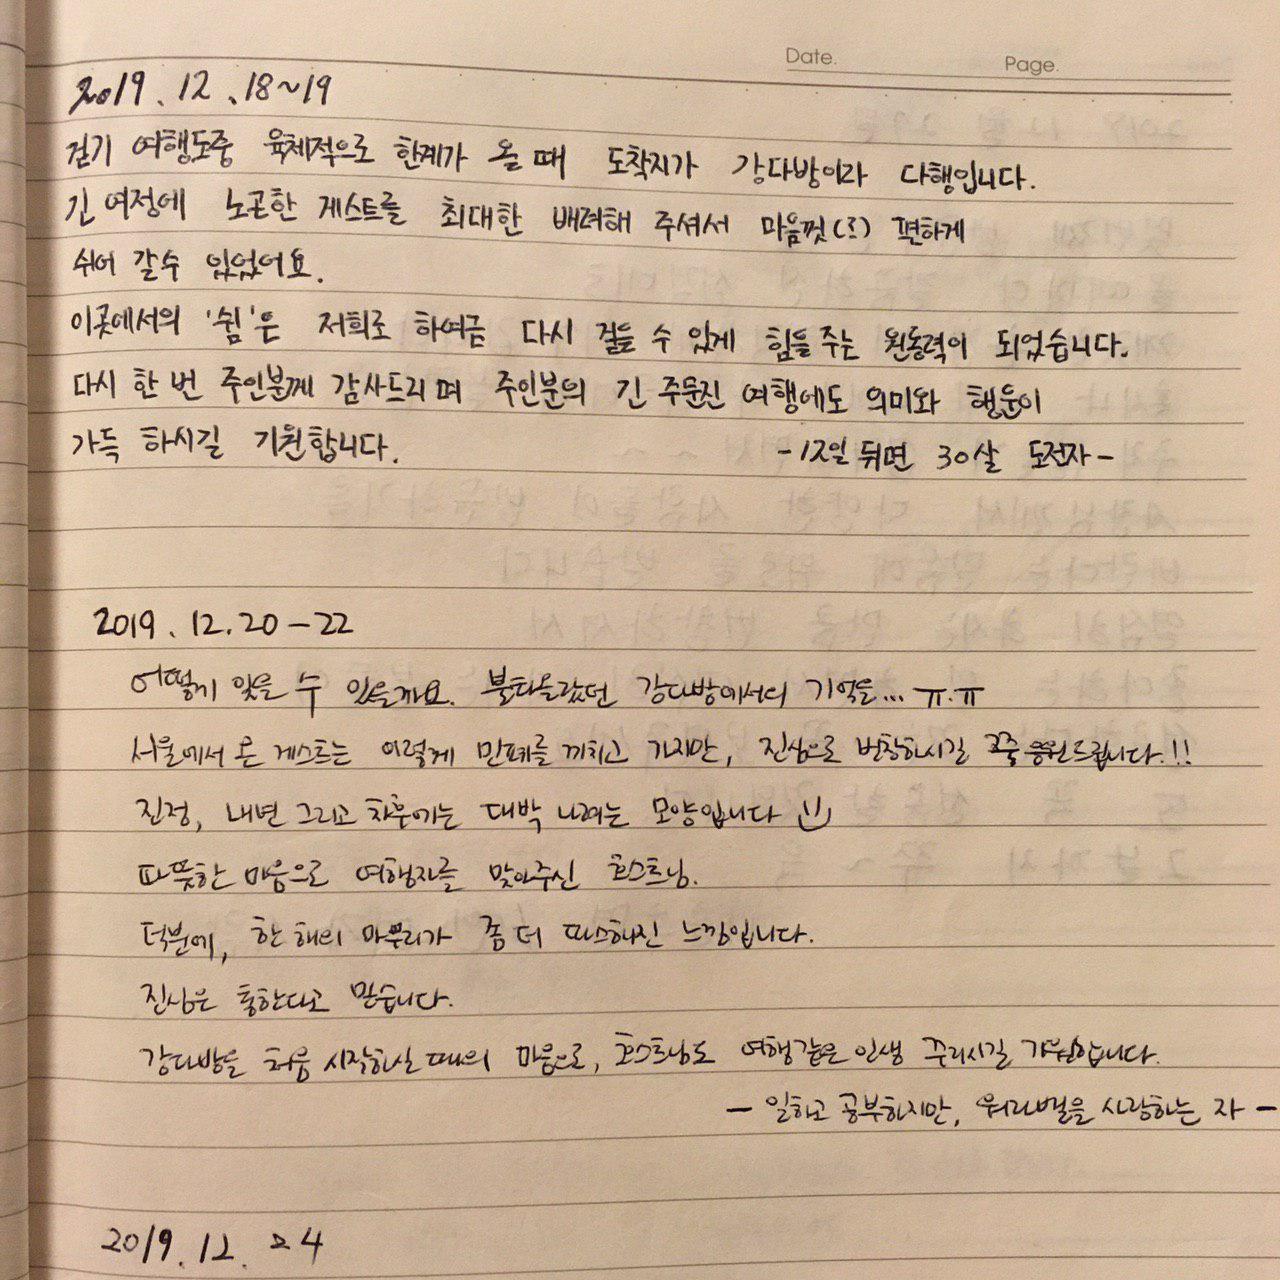 Date.
Page.
2019. 12. 18~19
걷기 여행도중 육체적으로 한계가 올 때 도착지가 강다방이라 다행입니다.
긴 여정에 노곤한 게스트를 최대한 배려해 주셔서 마음껏(?) 편하게
쉬어 갈수 있었어요.
이곳에서의 '쉼'은 저희로 하여금 다시 걸을 수 있게 힘을 주는 원동력이 되었습니다.
다시 한 번 주인분께 감사드리며 주인분의 긴 주문진 여행에도 의미와 행운이
가득 하시길 기원합니다.
-12일 뒤면 30살 도전자-
2019. 12. 20-22
어떻게 잊을 수 있을까요. 불타올랐던 강다방에서의 기억을... ㅠ.ㅠ
서울에서 온 게스트는 이렇게 민폐를 끼치고 가지만, 진심으로 번창하시길 쭉 응원드립니다.!!
진정, 내년 그리고 차후에는 대박 나려는 모양입니다
따뜻한 마음으로 여행자를 맞아주신 호스트님.
덕분에, 한 해의 마무리가 좀 더 따스해진 느낌입니다.
진심은 통한다고 믿습니다.
강다방을 처음 시작하실 때의 마음으로, 호스트님도 여행같은 인생 꾸리시길 기원합니다.
- 일하고 공부하지만, 워라벨을 사랑하는 자 -
2019. 12. 24